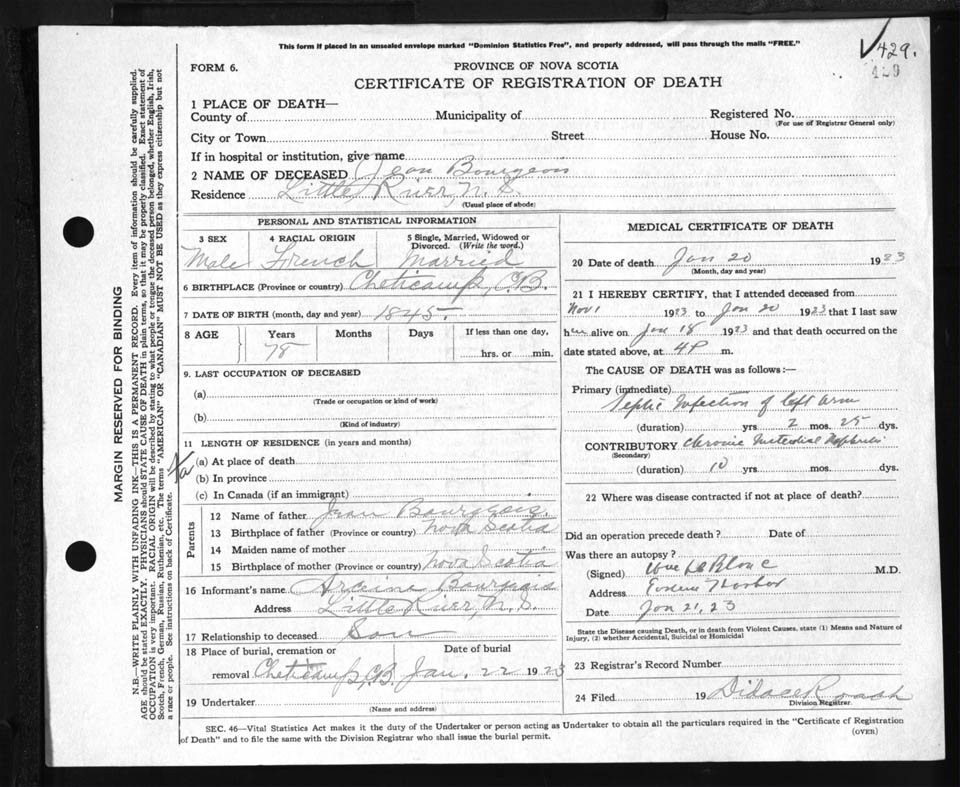 This form if placed in an unsealed envelope marked "Dominion Statistics Free", and properly addressed, will pass through the mails "FREE."
429.
429
FORM 6.
PROVINCE OF NOVA SCOTIA
CERTIFICATE OF REGISTRATION OF DEATH
1 PLACE OF DEATH—
County of Municipality of Registered No.
(For use of Registrar General only)
City or Town Street House No.
If in hospital or institution, give name
2 NAME OF DECEASED Jean Bourgeois
Residence Little River, N. S.
(Usual place of abode)
PERSONAL AND STATISTICAL INFORMATION
3 SEX 4 RACIAL ORIGIN 5 Single, Married, Widowed or Divorced. (Write the word.)
Male French Married
6 BIRTHPLACE (Province or country) Cheticamp, C.B.
7 DATE OF BIRTH (month, day and year) 1845.
8 AGE Years Months Days If less than one day,
78 hrs. or min.
9. LAST OCCUPATION OF DECEASED
(a)
(Trade or occupation or kind of work)
(b)
(Kind of industry)
11 LENGTH OF RESIDENCE (in years and months)
(a) At place of death
(b) In province
(c) In Canada (if an immigrant)
Parents
12 Name of father Jean Bourgeois.
13 Birthplace of father (Province or country) Nova Scotia
14 Maiden name of mother
15 Birthplace of mother (Province or country) Nova Scotia
16 Informant's name Bourgeois
Address Little River, N. S.
17 Relationship to deceased Son
18 Place of burial, cremation or Date of burial
removal Cheticamp, C.B. Jan. 22 1923
19 Undertaker
(Name and address)
MEDICAL CERTIFICATE OF DEATH
20 Date of death Jan 20 1923
(Month, day and year)
21 I HEREBY CERTIFY, that I attended deceased from
Nov 1 1923 to Jan 20 1923 that I last saw
h alive on Jan 18 1923 and that death occurred on the
date stated above, at 4 P m.
The CAUSE OF DEATH was as follows:—
Primary (immediate)
Septic Infection of left arm
(duration) yrs 2 mos. 25 dys.
CONTRIBUTORY Chronic Nephritis
(Secondary)
(duration) 10 yrs. mos. dys.
22 Where was disease contracted if not at place of death?
Did an operation precede death? Date of
Was there an autopsy?
(Signed) LeBlanc M.D.
Address Harbor
Date Jan 21, 23
State the Disease causing Death, or in death from Violent Causes, state (1) Means and Nature of Injury, (2) whether Accidental, Suicidal or Homicidal
23 Registrar's Record Number
24 Filed 19 Didace Roach
Division Registrar.
SEC. 46—Vital Statistics Act makes it the duty of the Undertaker or person acting as Undertaker to obtain all the particulars required in the "Certificate of Registration
of Death" and to file the same with the Division Registrar who shall issue the burial permit.
(OVER)
MARGIN RESERVED FOR BINDING
N.B.—WRITE PLAINLY WITH UNFADING INK—THIS IS A PERMANENT RECORD. Every item of information should be carefully supplied.
AGE should be stated EXACTLY. PHYSICIANS should STATE CAUSE OF DEATH in plain terms, so that it may be properly classified. Exact statement of
OCCUPATION is very important. RACIAL ORIGIN will be described by stating to what people or tongue the deceased person belonged, whether English, Irish,
Scotch, French, German, Russian, Ruthenian, etc. The terms "AMERICAN" OR "CANADIAN" MUST NOT BE USED as they express citizenship but not
a race or people. See instructions on back of Certificate.